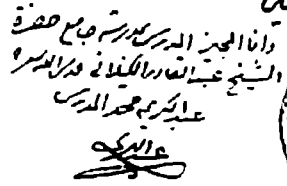 وانا المجيز المدرس بمدرسة جامع حضرة
الشيخ عبدالقادر الكيلاني قدس سره
عبدالكريم محمد المدرس